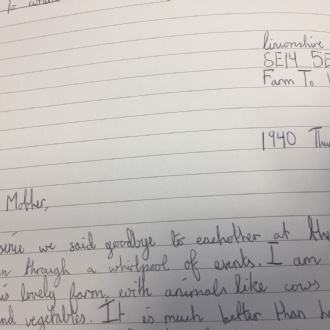 linconshire
SE14 5E
Farm To
1940 Thu
Mother,
since we said goodbye to eachother at the
through a whirlpool of events. I am
lovely farm, with animals like cows
nd vegetables. It is much better than